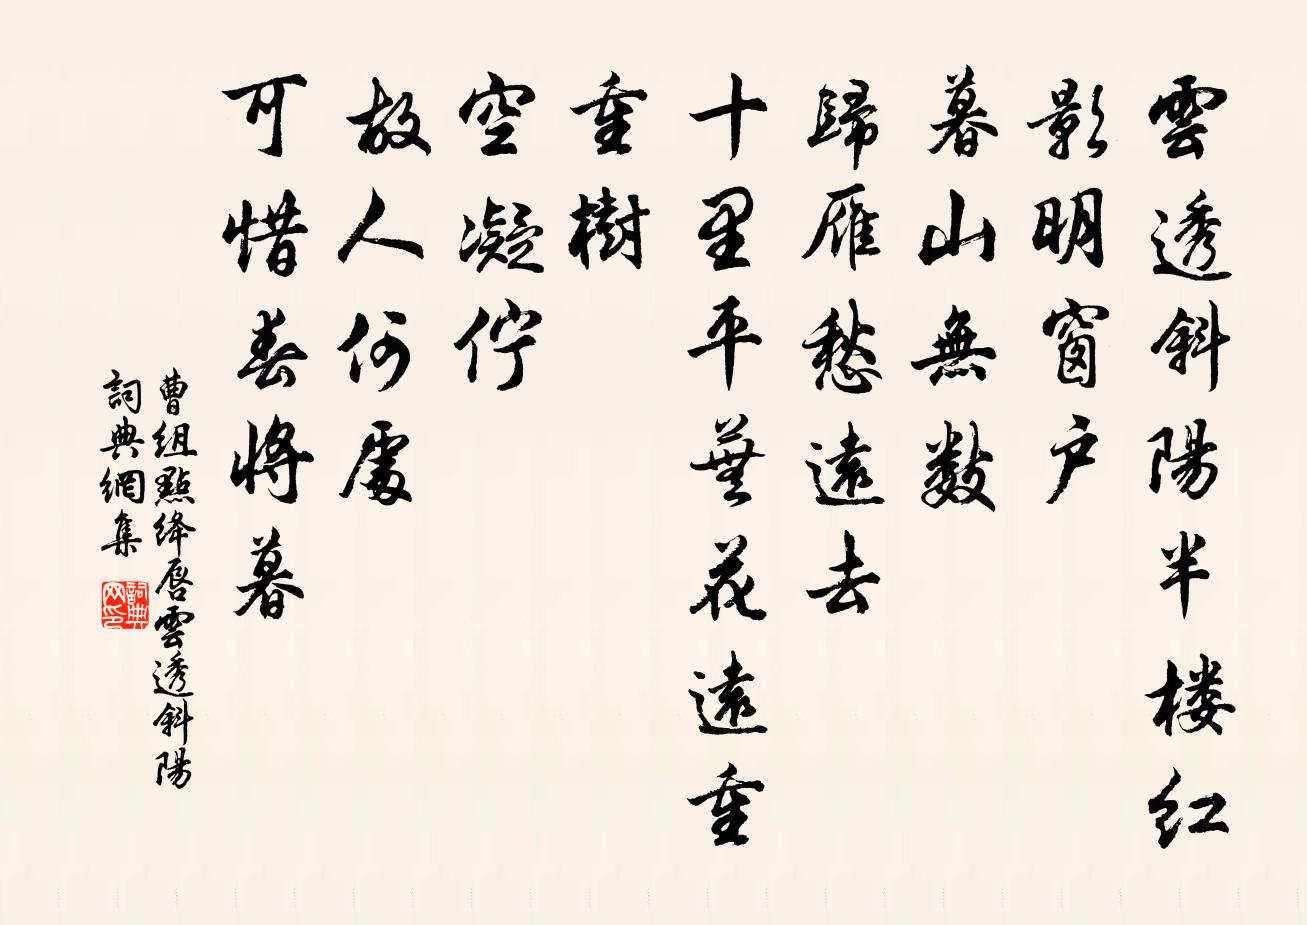 雲透斜陽半楼红
影明窗户
暮山無數
歸雁愁遠去
十里平蕪花遠重
重樹
空凝佇
故人何處
可惜春將暮
曹組點绛唇雲透斜陽
詞典網集
詞典网印